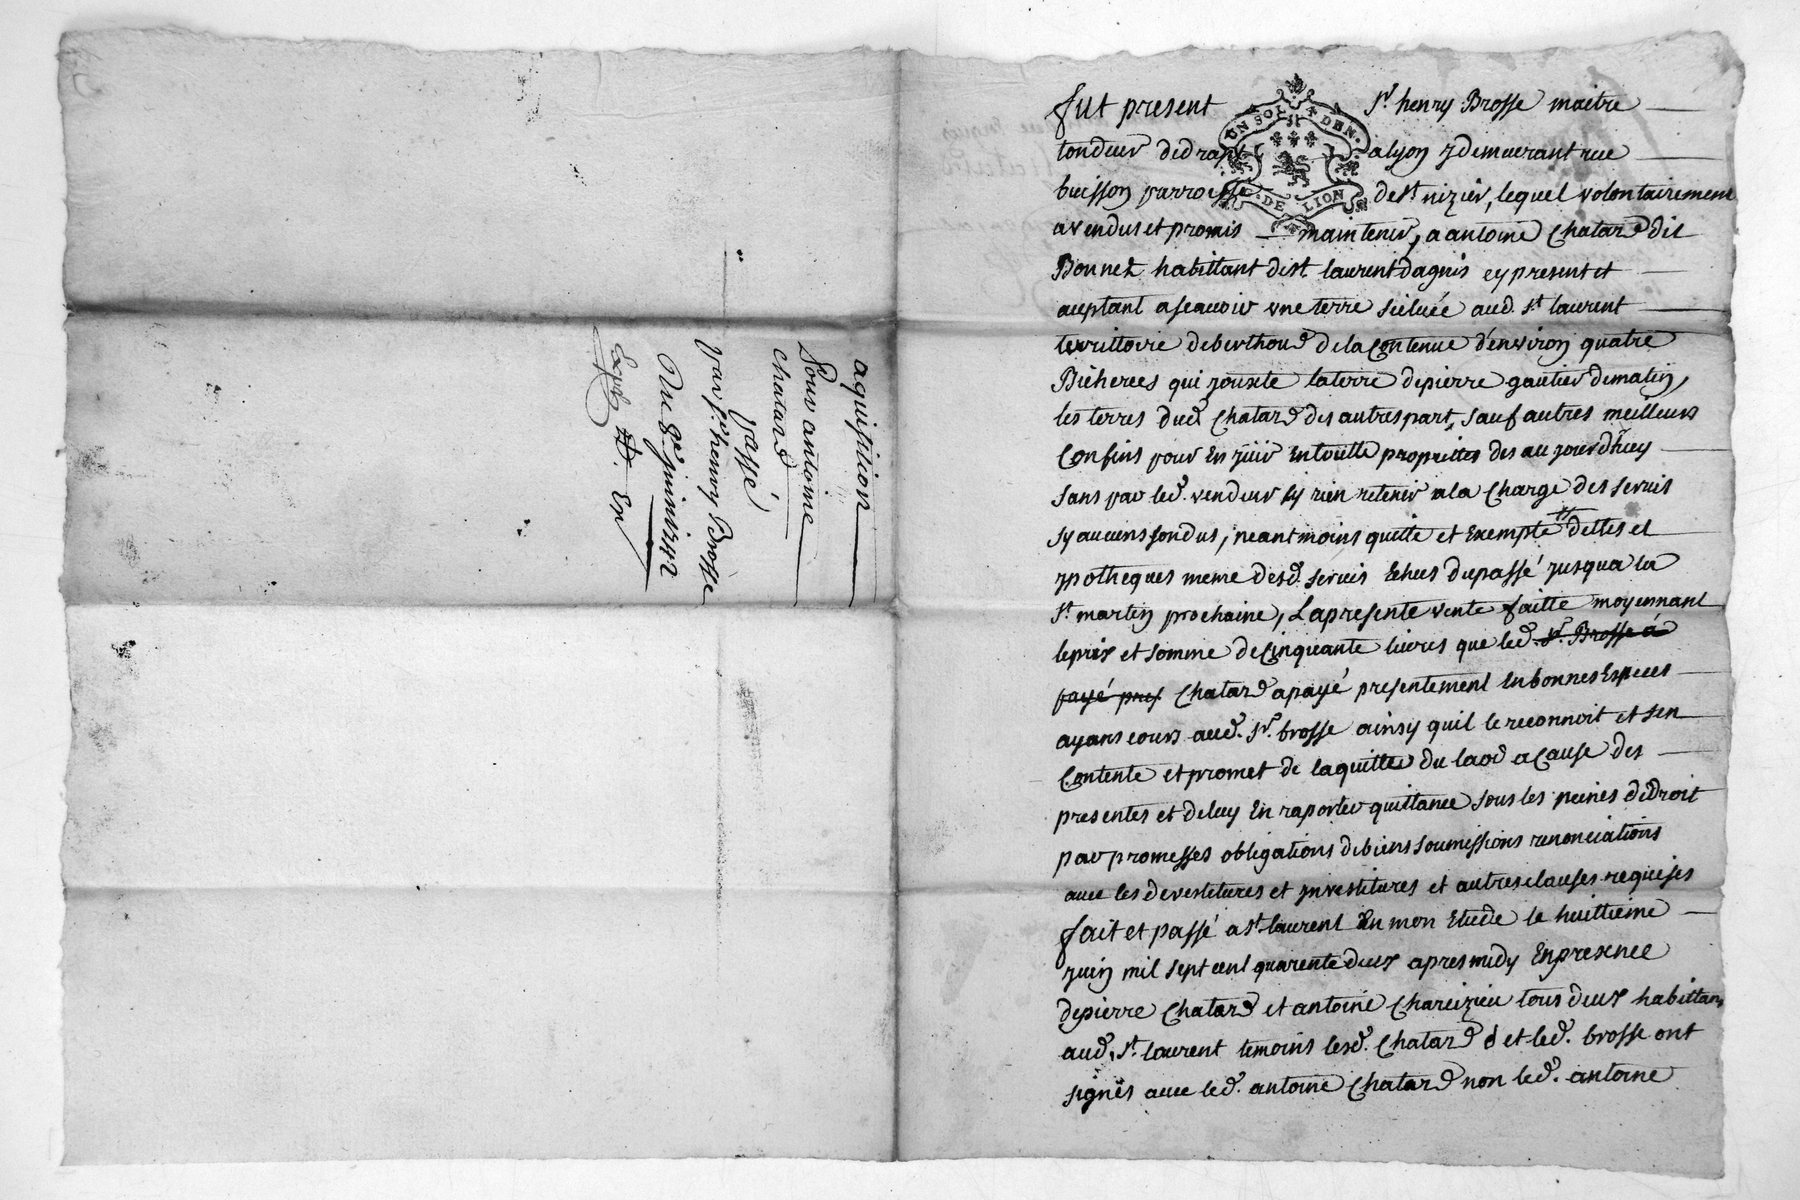 aquisition
Pour antoine
chatard
passé
par sr. henry Brosse
Du 8e. juin 1742
Expb
fut present Sr. henry Brosse maitre
UN SOL 4 DEN.
G. DE LION
tondeur de draps a lyon y demeurant rue
buisson parroisse de st. nizier, lequel volontairement
a vendus et promis maintenir, a antoine Chatard dit
Bonnet habittant dist. laurent dagnis cy present et
aceptant ascauoir une terre scituée aud. st laurent
territtoire de berthoud de la Contenue d'environ quatre
Bicherees qui jouxte la terre de pierre gautier de matin,
les terres dud. Chatard des autres part, sauf autres meilleurs
Confins pour En jouir En toutte proprietes des aujourdhuy
sans par led. vendeur sy rien retenir a la Charge des servis
sy aucuns sont dus, neantmoins quitte et Exempte dettes et
ypotheques meme desd. servis Echus du passé jusqua la
st. martin prochaine, La presente vente faitte moyennant
le prix et somme de Cinquante livres que led. sr. Brosse a
payé pres. Chatard a payé presentement En bonnes Especes
ayans cours aud. sr. brosse ainsy quil le reconnoit et sen
Contente et promet de laquitter du laod a Cause des
presentes et de luy En raporter quittance sous les peines de droit
par promesses obligations de biens soumissions renonciations
avec les devestitures et ynvestitures et autres clauses requises
fait et passé a st. laurent En mon Etude le huittieme
juin mil sept cent quarente deux apres midy En presence
de pierre Chatard et antoine Chareizieu tous deux habittans
aud. st. laurent temoins lesd. Chatard et led. brosse ont
signés avec led. antoine Chatard non led. antoine